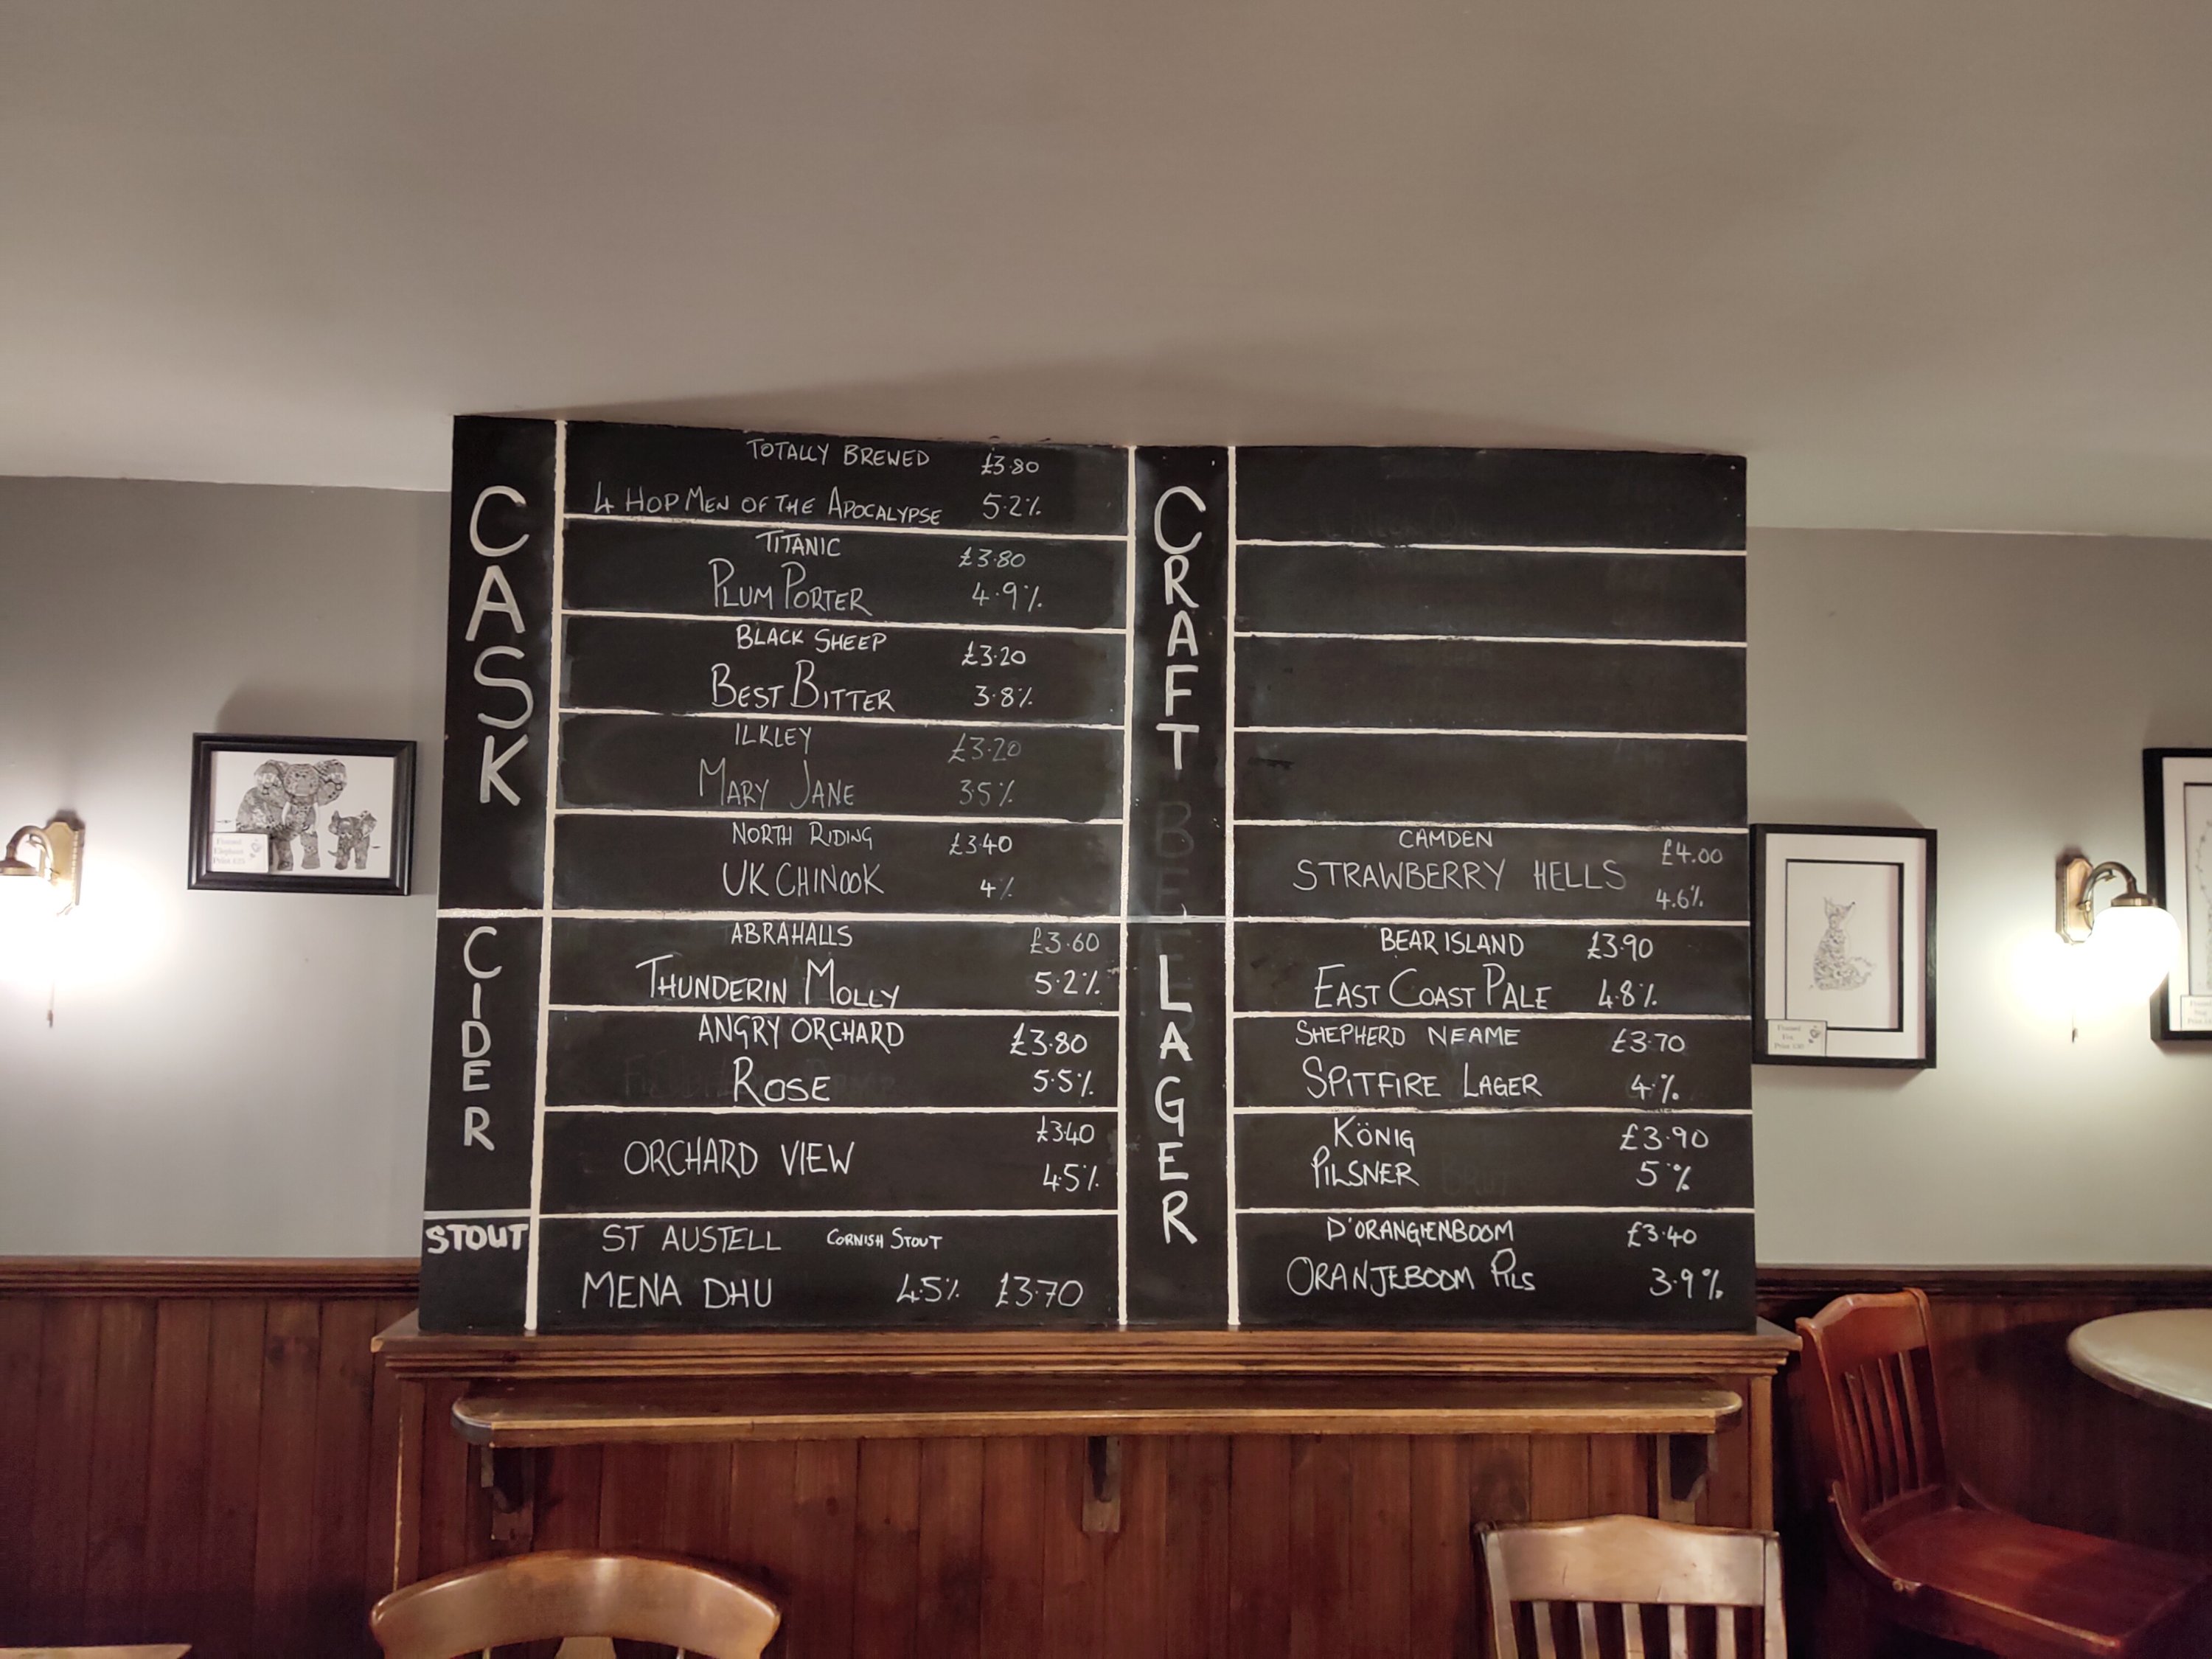 CASK
TOTALLY BREWED £3.80
4 HOP MEN OF THE APOCALYPSE 5.2%
TITANIC £3.80
PLUM PORTER 4.9%
BLACK SHEEP £3.20
BEST BITTER 3.8%
ILKLEY £3.20
MARY JANE 3.5%
NORTH RIDING £3.40
UK CHINOOK 4%
CIDER
ABRAHALLS £3.60
THUNDERIN MOLLY 5.2%
ANGRY ORCHARD £3.80
ROSE 5.5%
ORCHARD VIEW £3.40
4.5%
STOUT
ST AUSTELL CORNISH STOUT
MENA DHU 4.5% £3.70
CRAFT
CAMDEN £4.00
STRAWBERRY HELLS 4.6%
LAGER
BEAR ISLAND £3.90
EAST COAST PALE 4.8%
SHEPHERD NEAME £3.70
SPITFIRE LAGER 4.%
KÖNIG £3.90
PILSNER 5%
D'ORANGIENBOOM £3.40
ORANJEBOOM PILS 3.9%
Elephant
Print £35
Fox
Print £30